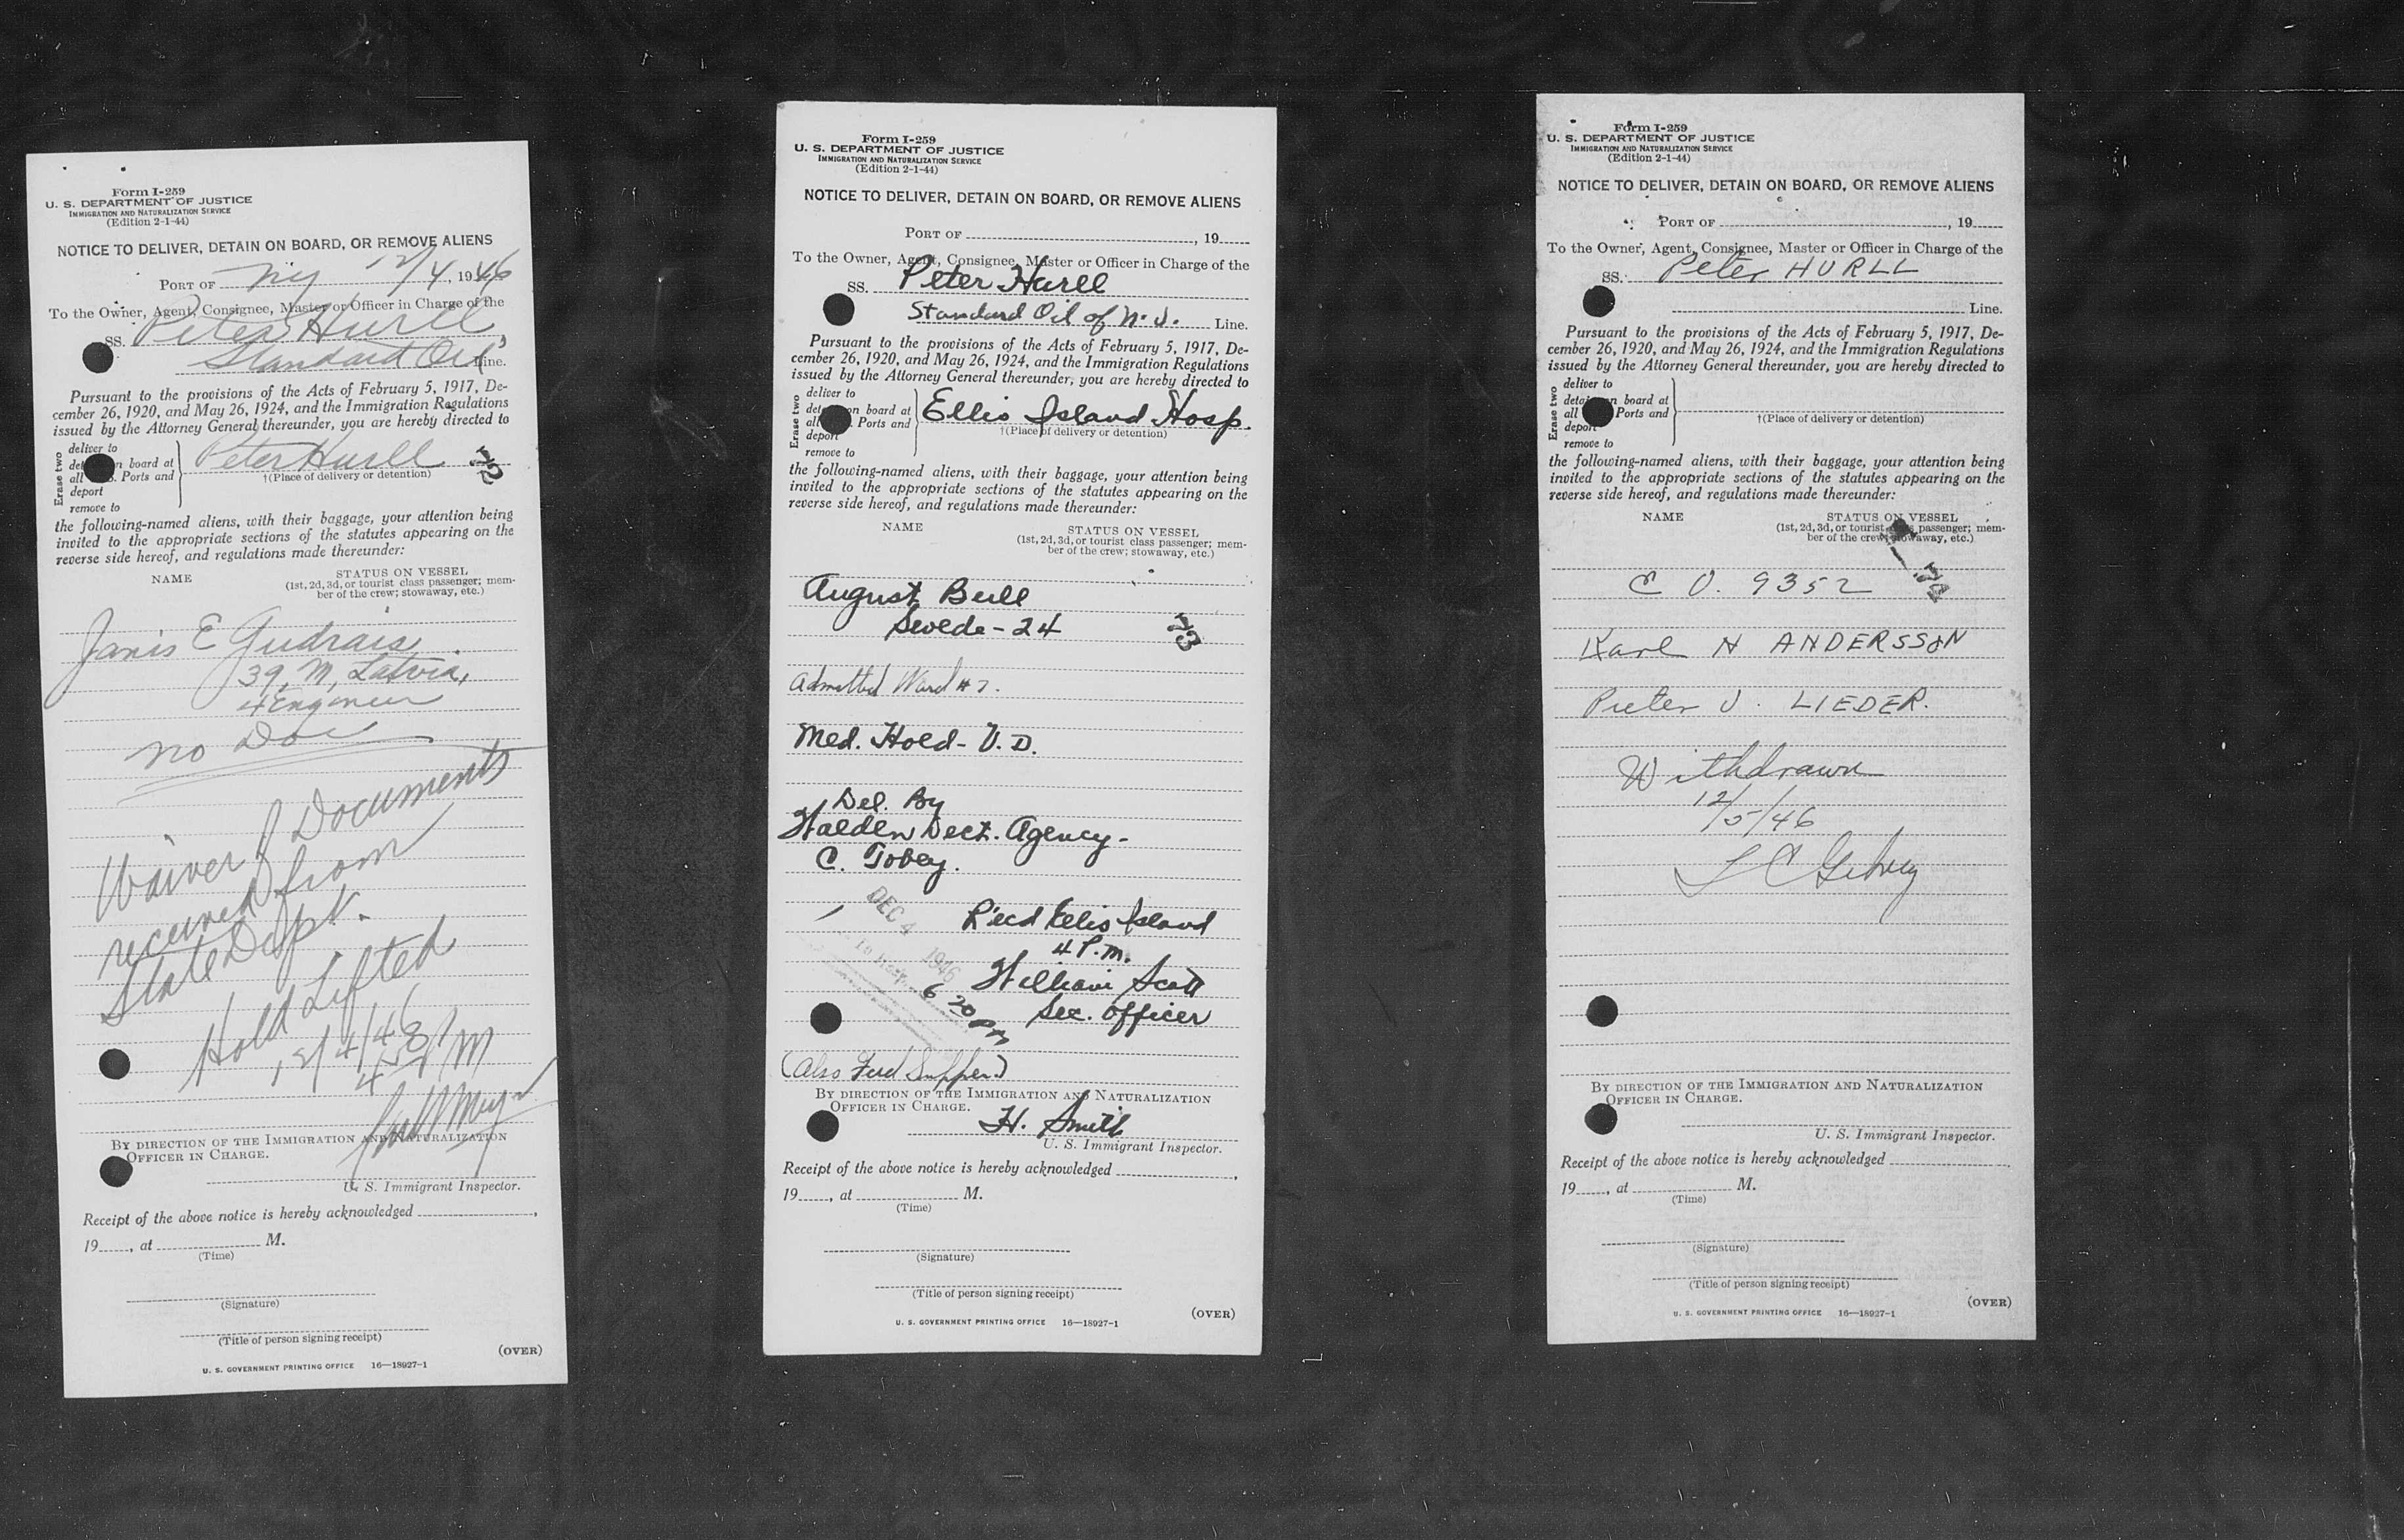 Form I-259
U. S. DEPARTMENT OF JUSTICE
IMMIGRATION AND NATURALIZATION SERVICE
(Edition 2-1-44)
NOTICE TO DELIVER, DETAIN ON BOARD, OR REMOVE ALIENS
PORT OF NY 12/4, 1946
To the Owner, Agent, Consignee, Master or Officer in Charge of the
SS. Peter Hurll
Standard Oil Line.
Pursuant to the provisions of the Acts of February 5, 1917, De-
cember 26, 1920, and May 26, 1924, and the Immigration Regulations
issued by the Attorney General thereunder, you are hereby directed to
Erase two
deliver to
det n board at
all S. Ports and
deport
remove to
Peter Hurll
†(Place of delivery or detention)
72
the following-named aliens, with their baggage, your attention being
invited to the appropriate sections of the statutes appearing on the
reverse side hereof, and regulations made thereunder:
NAME
STATUS ON VESSEL
(1st, 2d, 3d, or tourist class passenger; mem-
ber of the crew; stowaway, etc.)
Janis E Gudrais
39, M, Latvia,
4 Engineer
no Doc
Waiver of Documents
received from
State Dept.
Hold Lifted
12/4/46
PM
BY DIRECTION OF THE IMMIGRATION AND NATURALIZATION
OFFICER IN CHARGE.
U. S. Immigrant Inspector.
Receipt of the above notice is hereby acknowledged
19, at M.
(Time)
(Signature)
(Title of person signing receipt)
(OVER)
U. S. GOVERNMENT PRINTING OFFICE 16—18927-1
Form I-259
U. S. DEPARTMENT OF JUSTICE
IMMIGRATION AND NATURALIZATION SERVICE
(Edition 2-1-44)
NOTICE TO DELIVER, DETAIN ON BOARD, OR REMOVE ALIENS
PORT OF , 19
To the Owner, Agent, Consignee, Master or Officer in Charge of the
SS. Peter Hurll
Standard Oil of N. J. Line.
Pursuant to the provisions of the Acts of February 5, 1917, De-
cember 26, 1920, and May 26, 1924, and the Immigration Regulations
issued by the Attorney General thereunder, you are hereby directed to
Erase two
deliver to
det on board at
all Ports and
deport
remove to
Ellis Island Hosp.
†(Place of delivery or detention)
the following-named aliens, with their baggage, your attention being
invited to the appropriate sections of the statutes appearing on the
reverse side hereof, and regulations made thereunder:
NAME
STATUS ON VESSEL
(1st, 2d, 3d, or tourist class passenger; mem-
ber of the crew; stowaway, etc.)
August Bull
Swede - 24
73
Admitted Ward #7.
Med. Hold - V. D.
Del. By
Walden Dect. Agency -
C. Tobey.
DEC 4 1946
To Hosp.
6 20 PM
R'ecd Ellis Island
4 P.m.
William Scott
Sec. Officer
(Also Fed Supper)
BY DIRECTION OF THE IMMIGRATION AND NATURALIZATION
OFFICER IN CHARGE.
H. Smith
U. S. Immigrant Inspector.
Receipt of the above notice is hereby acknowledged ,
19, at M.
(Time)
(Signature)
(Title of person signing receipt)
(OVER)
U. S. GOVERNMENT PRINTING OFFICE 16—18927-1
Form I-259
U. S. DEPARTMENT OF JUSTICE
IMMIGRATION AND NATURALIZATION SERVICE
(Edition 2-1-44)
NOTICE TO DELIVER, DETAIN ON BOARD, OR REMOVE ALIENS
PORT OF , 19
To the Owner, Agent, Consignee, Master or Officer in Charge of the
SS. Peter HURLL
Line.
Pursuant to the provisions of the Acts of February 5, 1917, De-
cember 26, 1920, and May 26, 1924, and the Immigration Regulations
issued by the Attorney General thereunder, you are hereby directed to
Erase two
deliver to
detai n board at
all Ports and
deport
remove to
†(Place of delivery or detention)
the following-named aliens, with their baggage, your attention being
invited to the appropriate sections of the statutes appearing on the
reverse side hereof, and regulations made thereunder:
NAME
STATUS ON VESSEL
(1st, 2d, 3d, or tourist class passenger; mem-
ber of the crew; stowaway, etc.)
74
E O. 9352
Karl H ANDERSSON
Pieter J. LIEDER.
Withdrawn
12/5/46
BY DIRECTION OF THE IMMIGRATION AND NATURALIZATION
OFFICER IN CHARGE.
U. S. Immigrant Inspector.
Receipt of the above notice is hereby acknowledged
19, at M.
(Time)
(Signature)
(Title of person signing receipt)
(OVER)
U. S. GOVERNMENT PRINTING OFFICE 16—18927-1